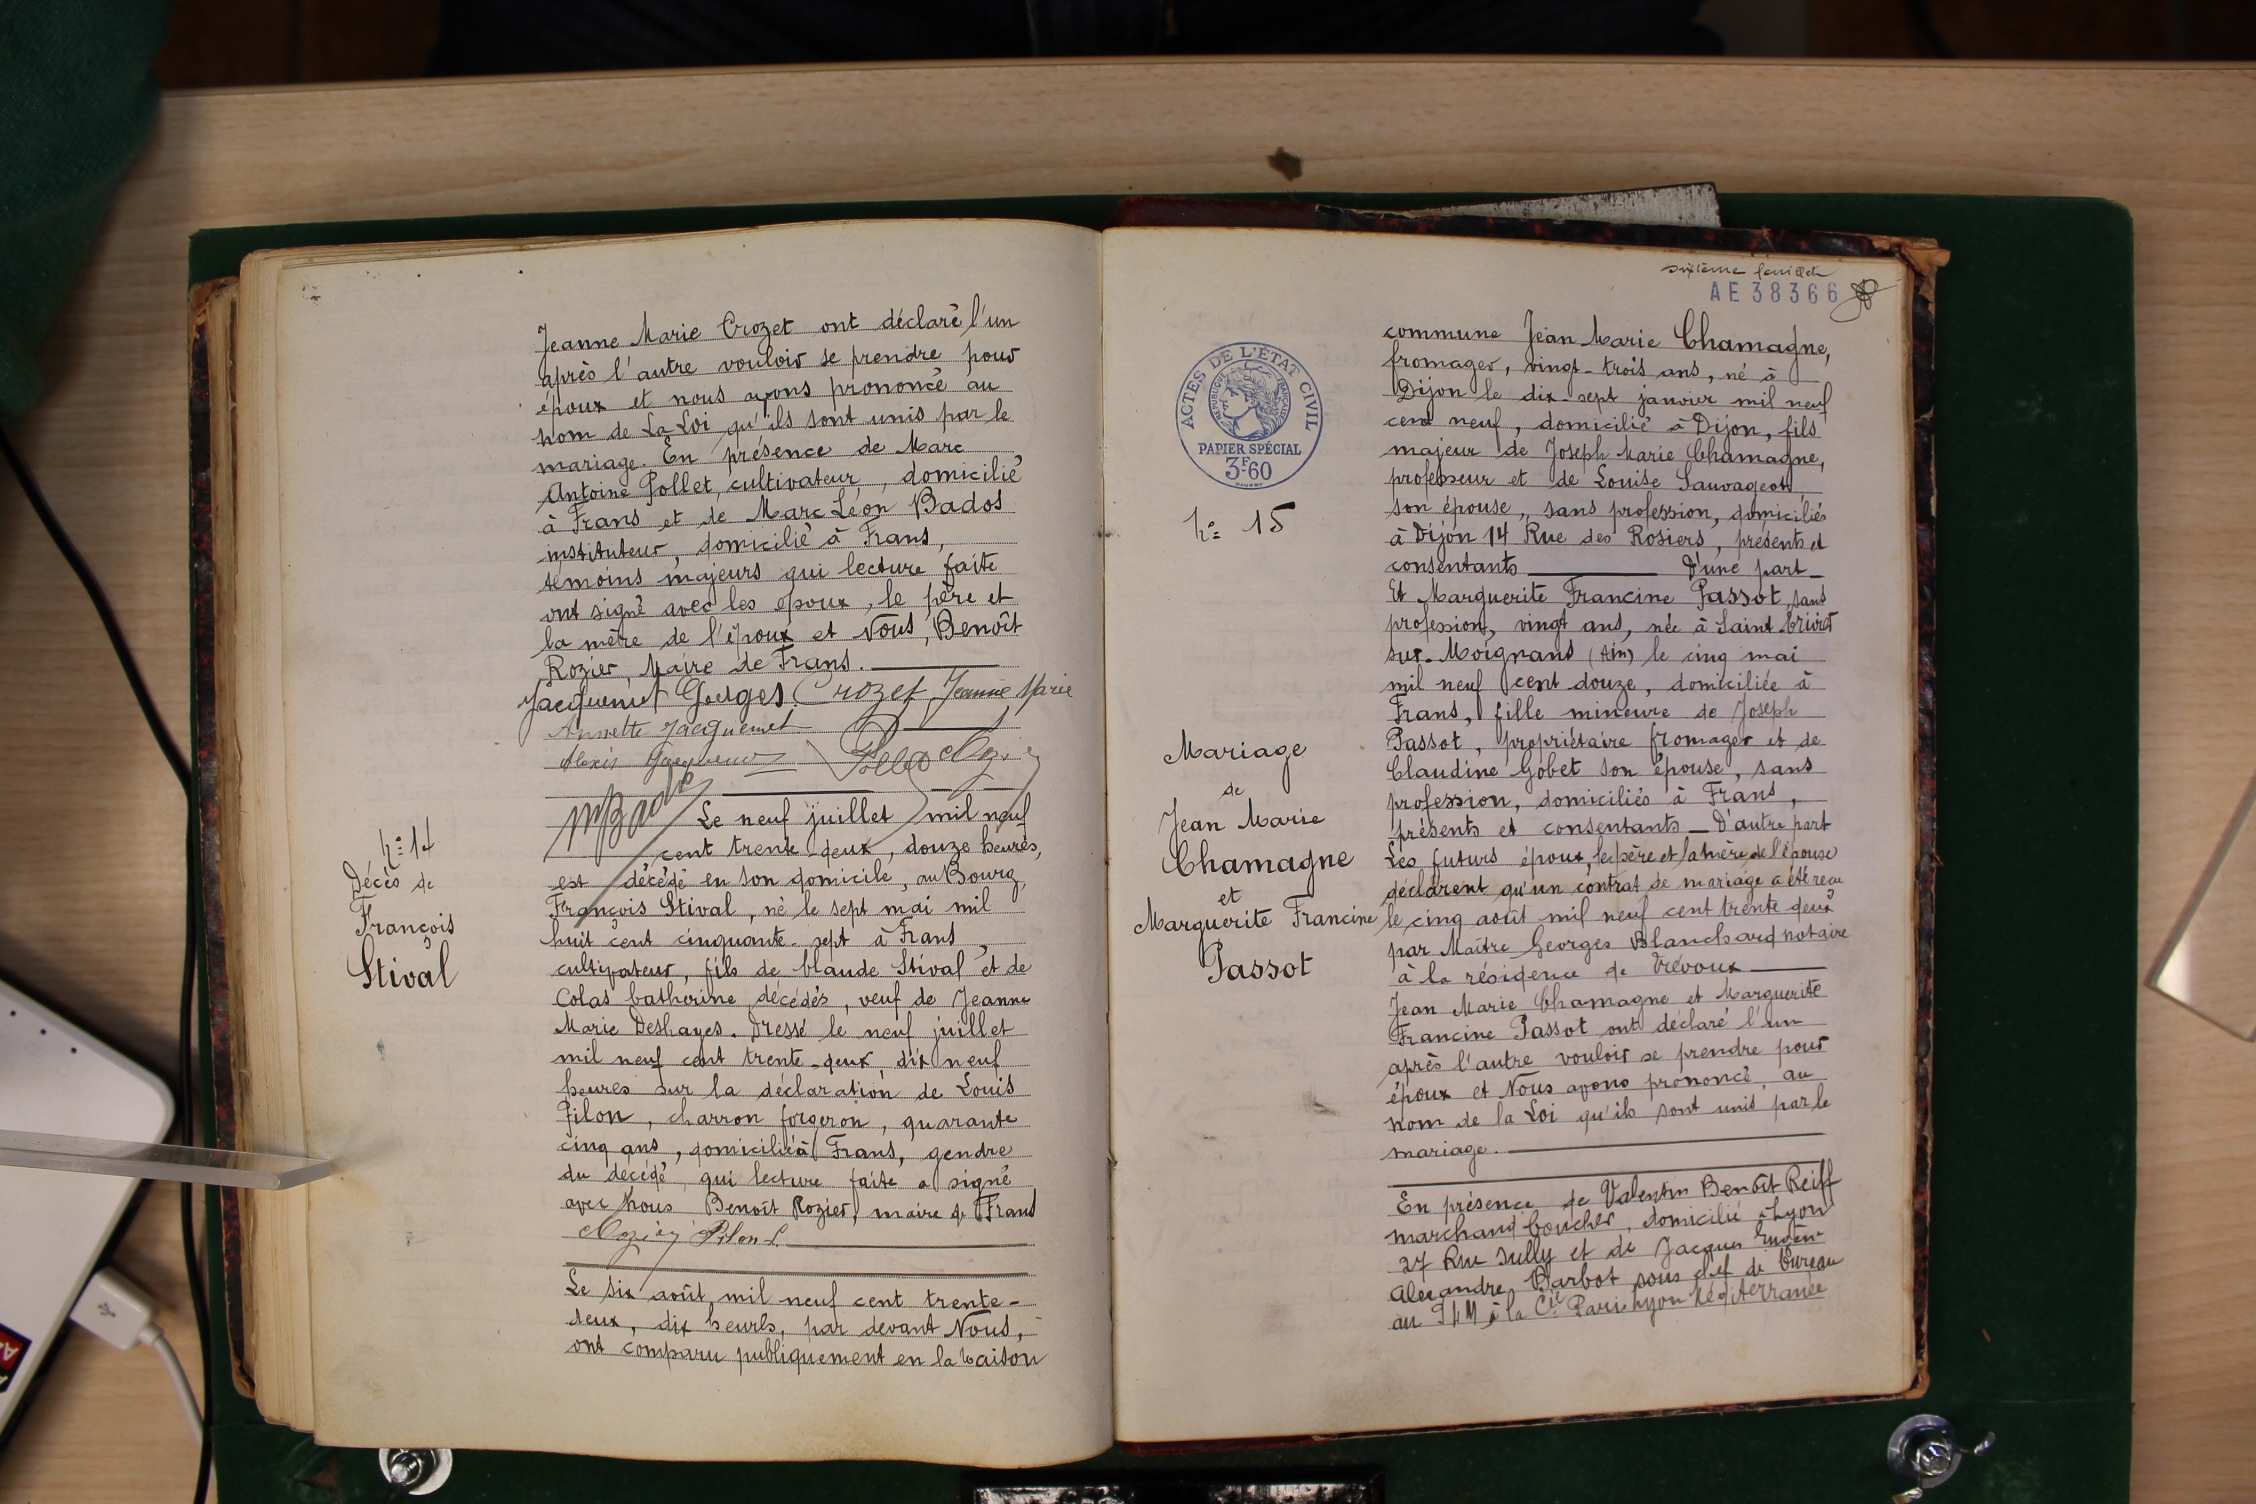 Jeanne Marie Crozet ont déclaré l'un
après l'autre vouloir se prendre pour
époux et nous avons prononcé au
nom de La Loi qu'ils sont unis par le
mariage. En présence de Marc
Antoine Pollet, cultivateur, domicilié
à Frans et de Marc Léon Bados
instituteur, domicilié à Frans,
témoins majeurs qui lecture faite
ont signé avec les époux, le père et
la mère de l'époux et Nous, Benoît
Rozier, Maire de Frans.
Jacquemet Georges Crozet Jeanne Marie
Annette Jacquemet
Alexis
Rozier
MBados
n° 14
Décès de
François
Stival
Le neuf juillet mil neuf
cent trente-deux, douze heures,
est décédé en son domicile, au Bourg,
François Stival, né le sept mai mil
huit cent cinquante-sept à Frans,
cultivateur, fils de Claude Stival et de
Colas Catherine, décédés, veuf de Jeanne
Marie Deshayes. Dressé le neuf juillet
mil neuf cent trente-deux dix neuf
heures sur la déclaration de Louis
Pilon, charron forgeron, quarante
cinq ans, domicilié à Frans, gendre
du décédé, qui lecture faite a signé
avec Nous Benoît Rozier, maire de Frans
Rozier Pilon L.
Le six août mil neuf cent trente-
deux, dix heures, par devant Nous,
ont comparu publiquement en la maison
sixième feuillet
AE 38366
ACTES DE L'ÉTAT CIVIL
RÉPUBLIQUE FRANÇAISE
PAPIER SPÉCIAL
3F60
n° 15
Mariage
de
Jean Marie
Chamagne
et
Marguerite Francine
Passot
commune Jean Marie Chamagne,
fromager, vingt-trois ans, né à
Dijon le dix-sept janvier mil neuf
cent neuf, domicilié à Dijon, fils
majeur de Joseph Marie Chamagne,
professeur et de Louise Sauvageot,
son épouse, sans profession, domiciliés
à Dijon 14 Rue des Rosiers, présents et
consentants D'une part
Et Marguerite Francine Passot, sans
profession, vingt ans, née à Saint Trivier
sur-Moignans (Ain) le cinq mai
mil neuf cent douze, domiciliée à
Frans, fille mineure de Joseph
Passot, propriétaire fromager et de
Claudine Gobet son épouse, sans
profession, domiciliés à Frans,
présents et consentants D'autre part
Les futurs époux, le père et la mère de l'épouse
déclarent qu'un contrat de mariage a été reçu
le cinq août mil neuf cent trente deux
par Maître Georges Blanchard notaire
à la résidence de Trévoux
Jean Marie Chamagne et Marguerite
Francine Passot ont déclaré l'un
après l'autre vouloir se prendre pour
époux et Nous avons prononcé, au
nom de la Loi qu'ils sont unis par le
mariage.
En présence de Valentin Benoît Reiff
marchand boucher, domicilié à Lyon
27 Rue Sully et de Jacques Eugène
Alexandre Barbot sous chef de bureau
au P.L.M à la Cie Paris Lyon Méditerranée